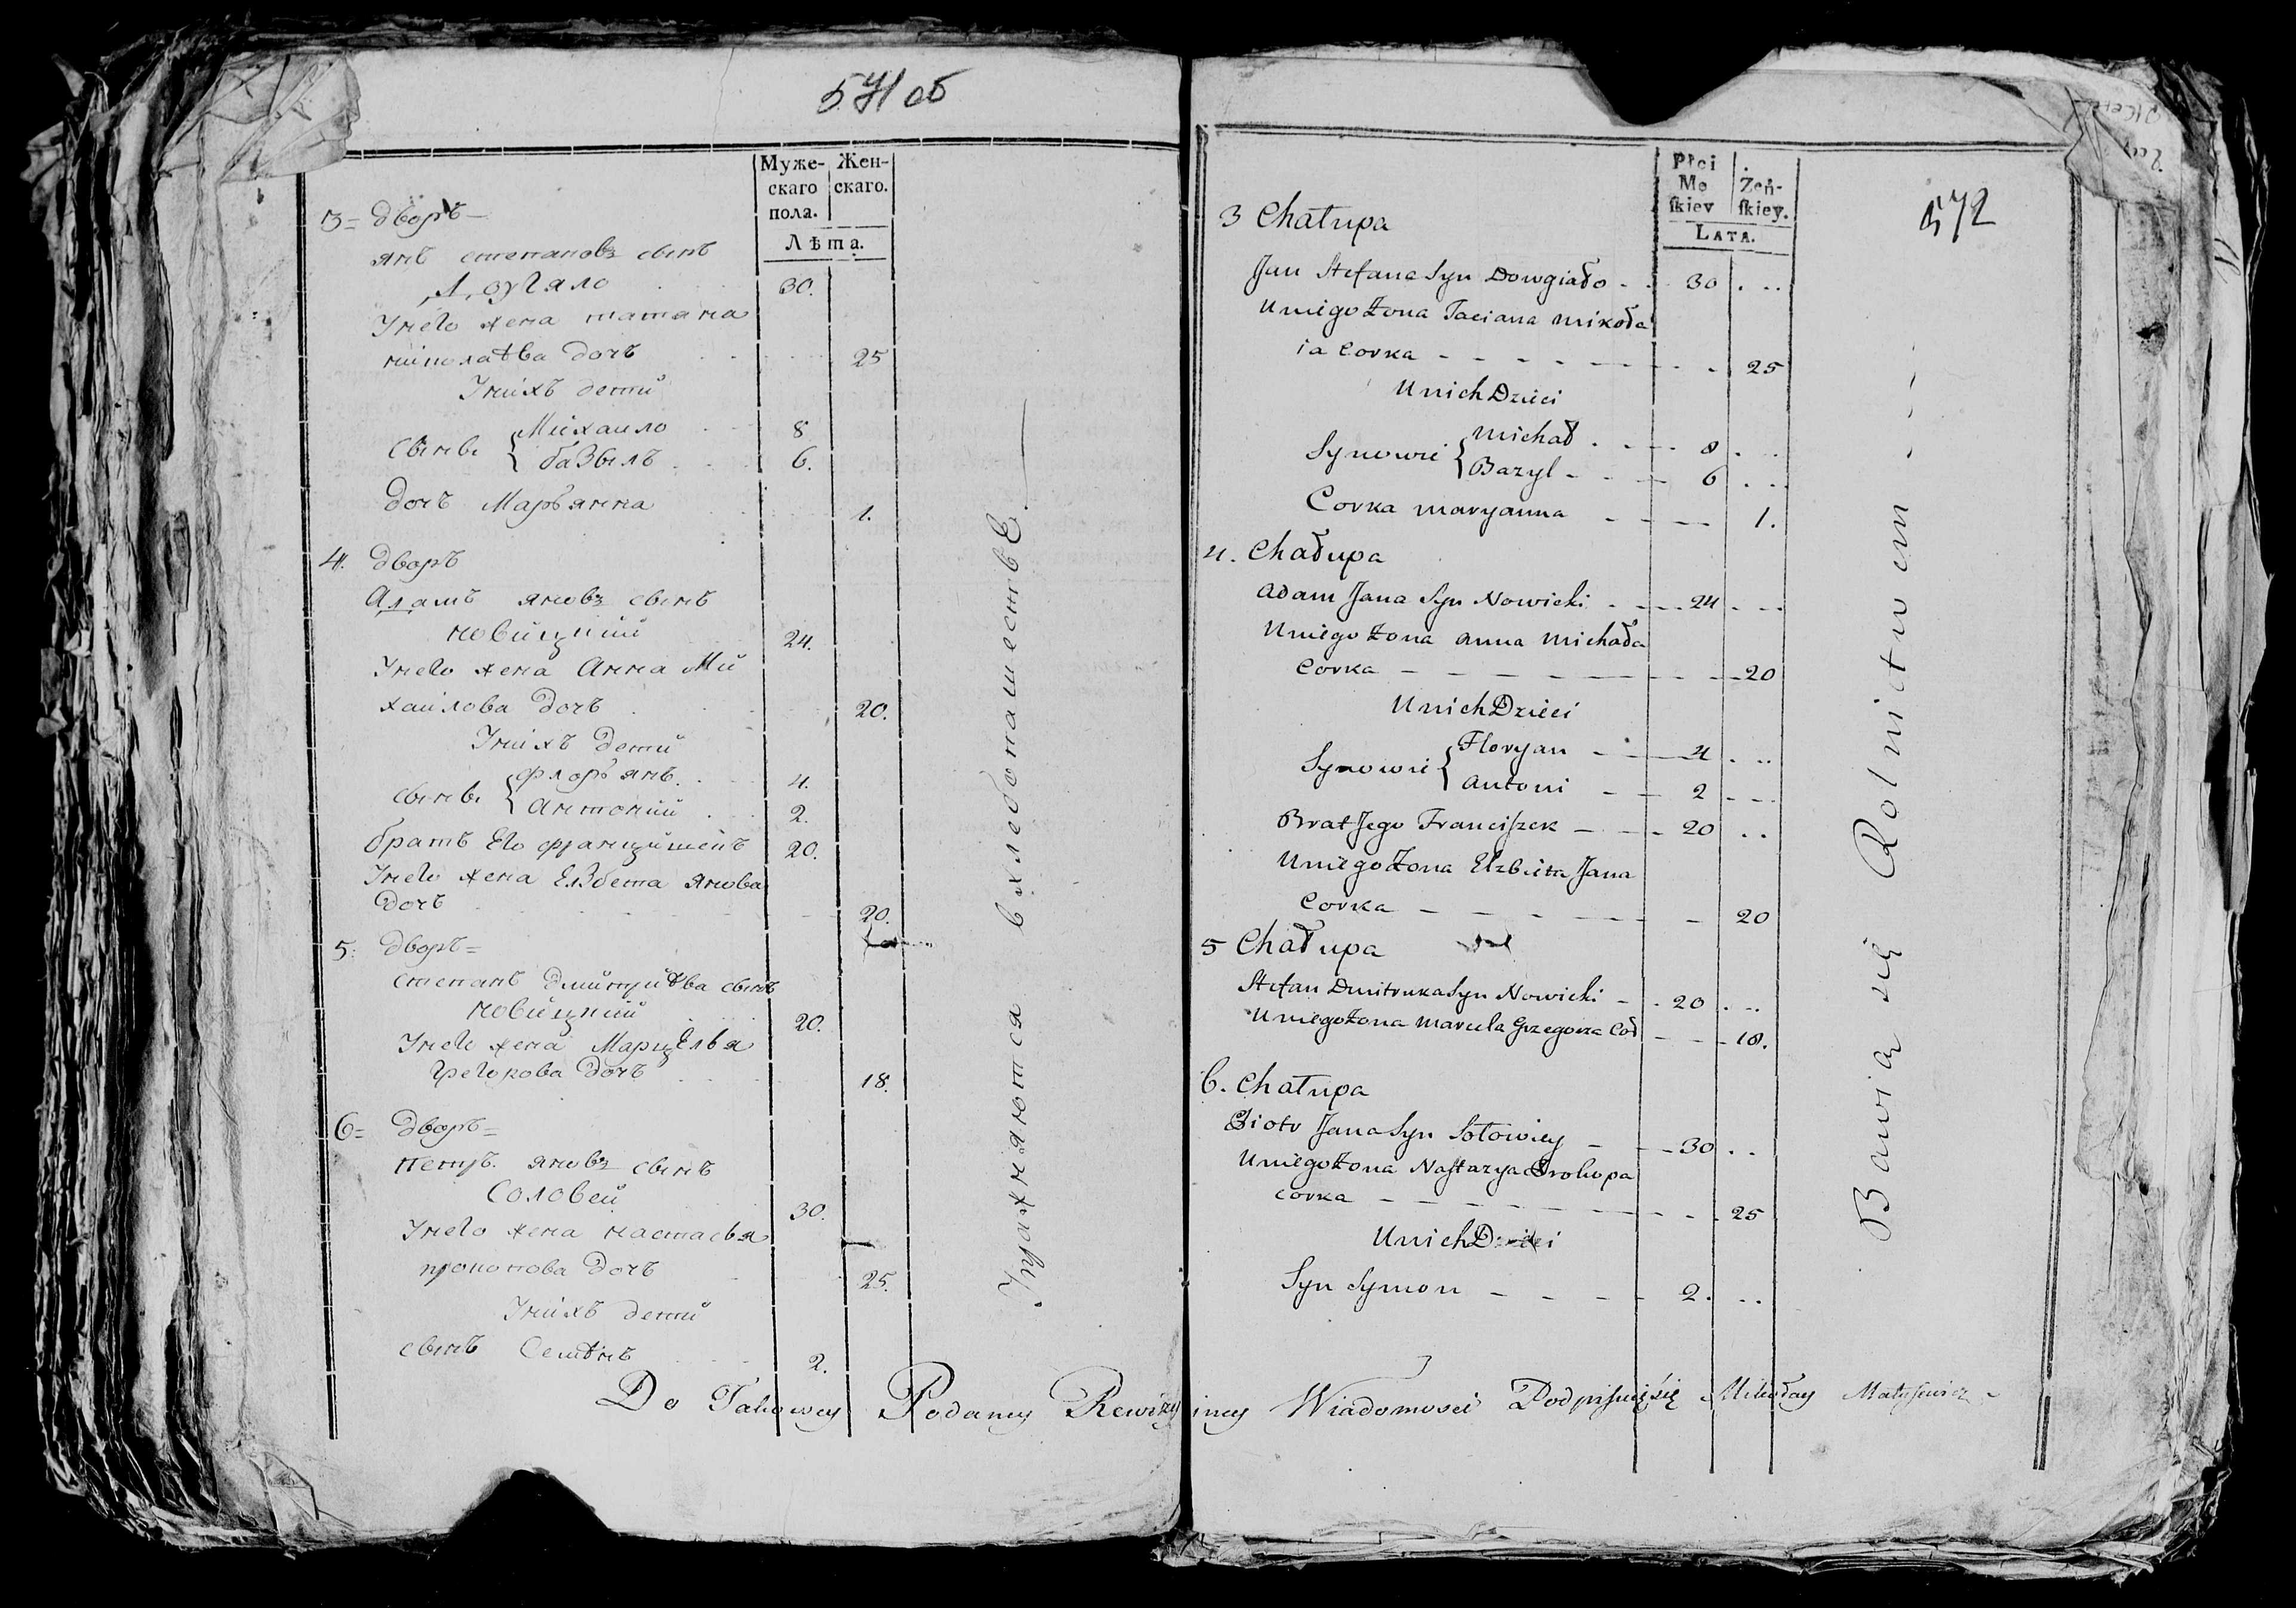 571 об
Муже-
скаго
пола.
Жен-
скаго.
Лѣта.
3= дворъ
янъ степановъ сынъ
Довгяло 30.
Унего жена татяна
миколаева дочъ 25
Унихъ дети
сыны Михаило 8
базылъ 6.
дочъ Маръянна 1.
4. дворъ
Адамъ яновъ сынъ
новицкий 24.
Унего жена Анна Ми
хаилова дочъ 20.
Унихъ дети
сыны флоръянъ 4.
антоний 2.
братъ Его францишекъ 20.
Унего жена Елзбета янова
дочъ 20.
5: дворъ=
степанъ дмитриева сынъ
новицкий 20.
Унего жена Марцелья
грегорова дочъ 18.
6= дворъ=
петръ яновъ сынъ
Соловей 30.
Унего жена настасья
прокопова дочъ 25.
Унихъ дети
сынъ Семѣнъ 2.
Упражняются в хлебопашестве
572
Płci
Mę
skiey
Żeń-
skiey.
LATA.
3 Chałupa
Jan Stefana Syn Dowgiało 30
Uniego Żona Taciana mikoła
ia Corka 25
Unich Dzieci
Synowie Michał 8
Bazyl 6
Corka maryanna 1.
4. Chałupa
Adam Jana Syn Nowicki 24
Uniego Żona Anna Michała
Corka 20
Unich Dzieci
Synowie Floryan 4
Antoni 2
Brat Jego Franciszek 20
Uniego Żona Elzbieta Jana
Corka 20
5 Chałupa
Stefan Dmitruka Syn Nowicki 20
Uniego Żona Marcela Grzegorza Cor 18.
6. Chałupa
Piotr Jana Syn Sołowiey 30
Uniego Żona Nastazya Prokopa
corka 25
Unich Dzieci
Syn Symon 2.
Bawią się Rolnictwem
Do Takowey Podaney Rewizyiney Wiadomosci Podpisuię się Mikołay Matusewicz